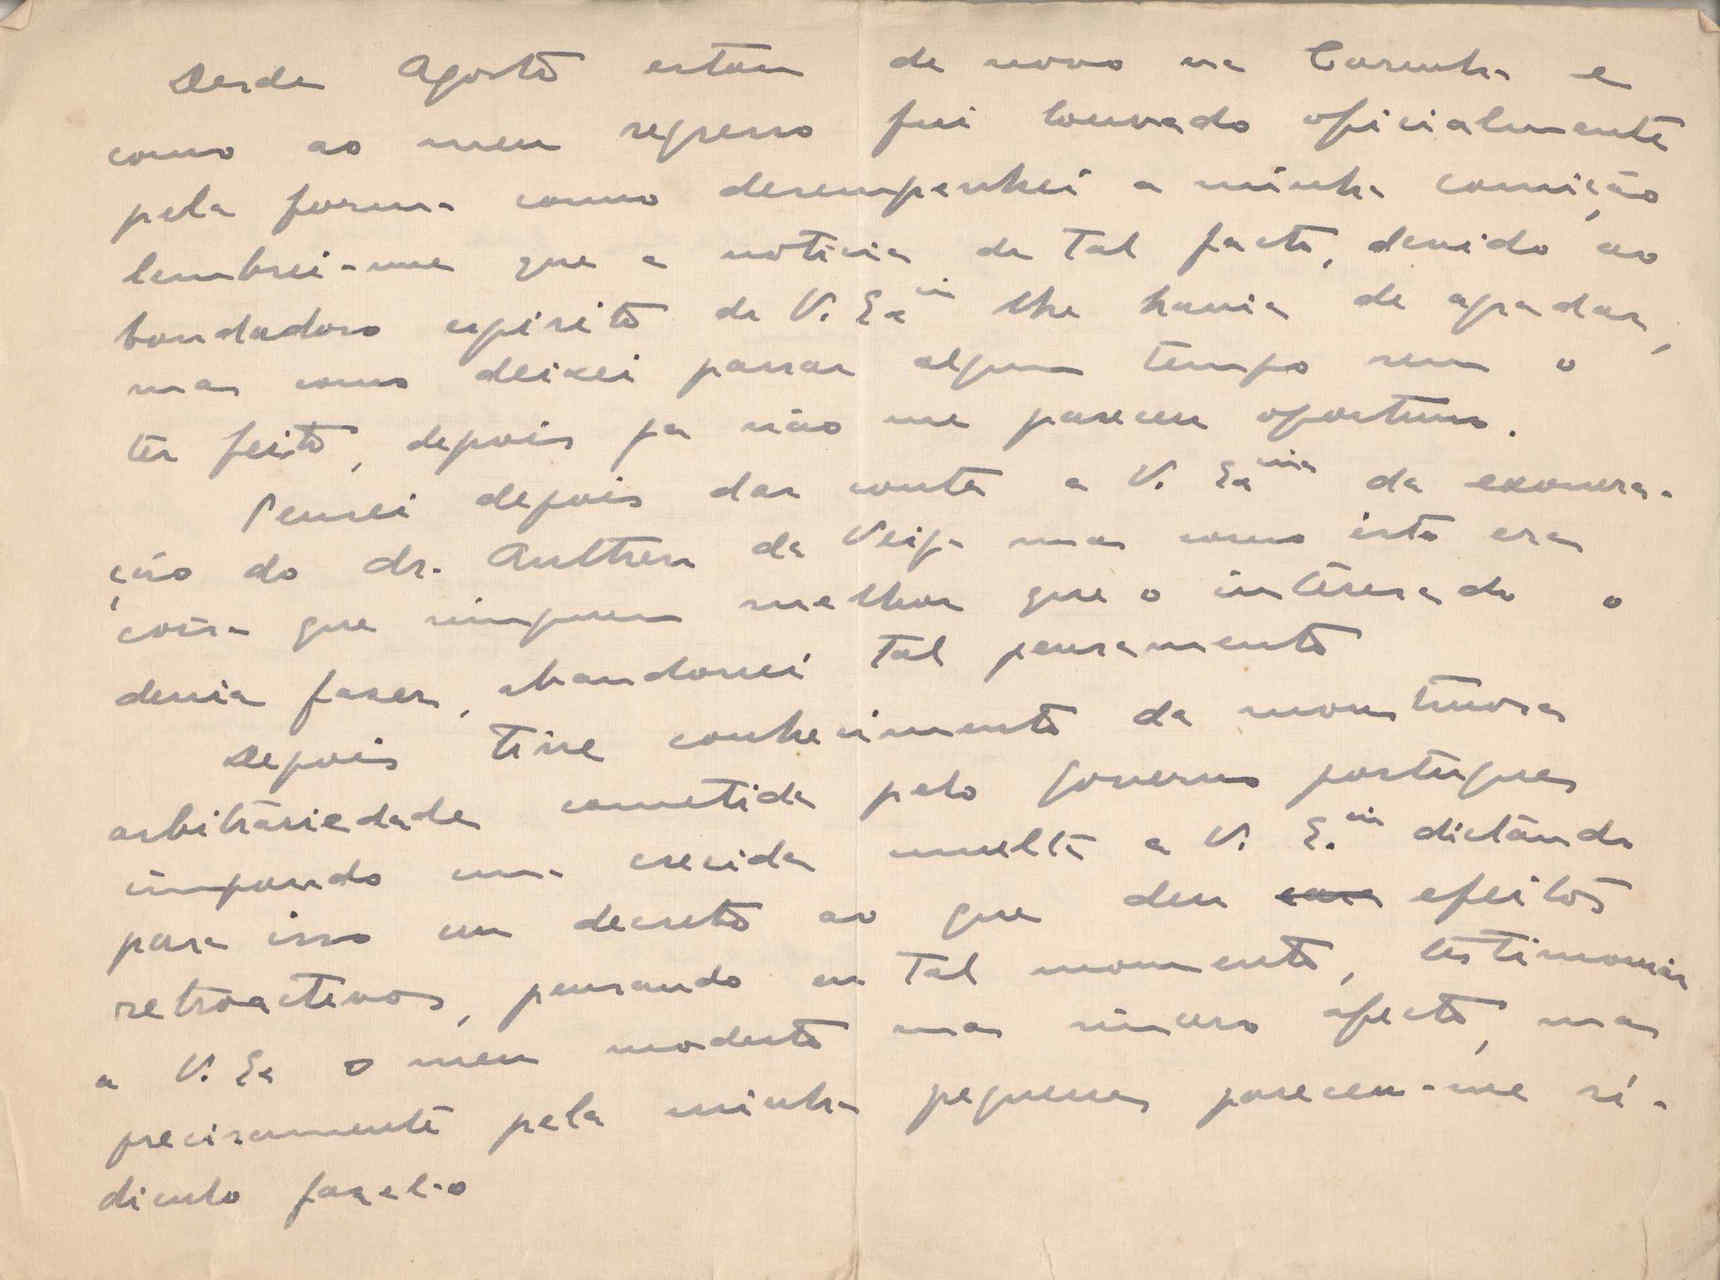 Desde Agosto estou de novo na Corunha e
como ao meu regresso fui louvado oficialmente
pela forma como desempenhei a minha comição
lembrei-me que a noticia de tal facto, devido ao
bondadoso espirito de V. Exᵃ lhe havia de agradar,
mas como deixei passar algum tempo sem o
ter feito, depois ja não me pareceu oportuno.
Pensei depois dar conta a V. Exᵐᵃ da exonera-
ção do dr. da Veiga mas como isto era
coisa que ninguem melhor que o interesado o
devia fazer, abandonei tal pensamento
Depois tive conhecimento da monstruosa
arbitrariedade cometida pelo governo portugues
impondo uma crecida multa a V. E. dictando
para isso um decreto ao que deu efeitos
retroactivos, pensando em tal momento, testimoniar
a V. Ex o meu modesto mas sincero afecto, mas
precisamente pela minha pequenez pareceu-me ri-
diculo fazel-o